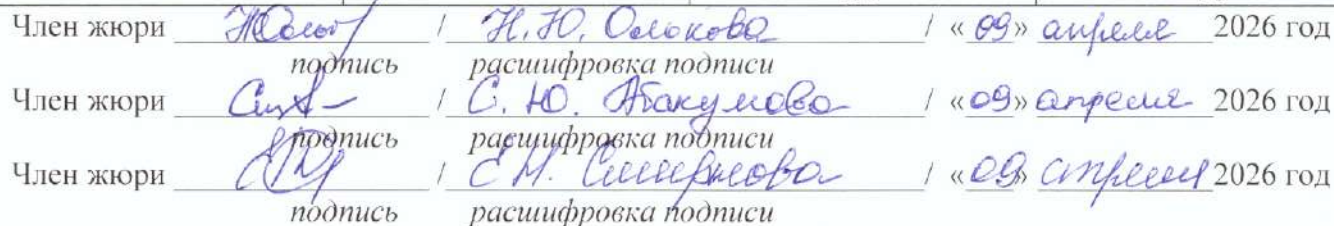 Член жюри / Н.Ю. / «09» апреля 2026 год
подпись расшифровка подписи
Член жюри / С. Ю. Абакумова / «09» апреля 2026 год
подпись расшифровка подписи
Член жюри / Е Н. Смирнова / «09» апреля 2026 год
подпись расшифровка подписи